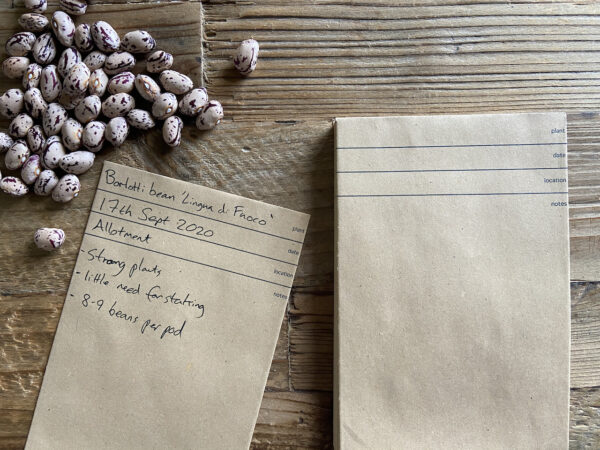 Borlotti bean 'Lingua di Fuoco'
plant
17th Sept 2020
date
Allotment
location
notes
- Strong plants
- little need for staking
- 8-9 beans per pod
plant
date
location
notes